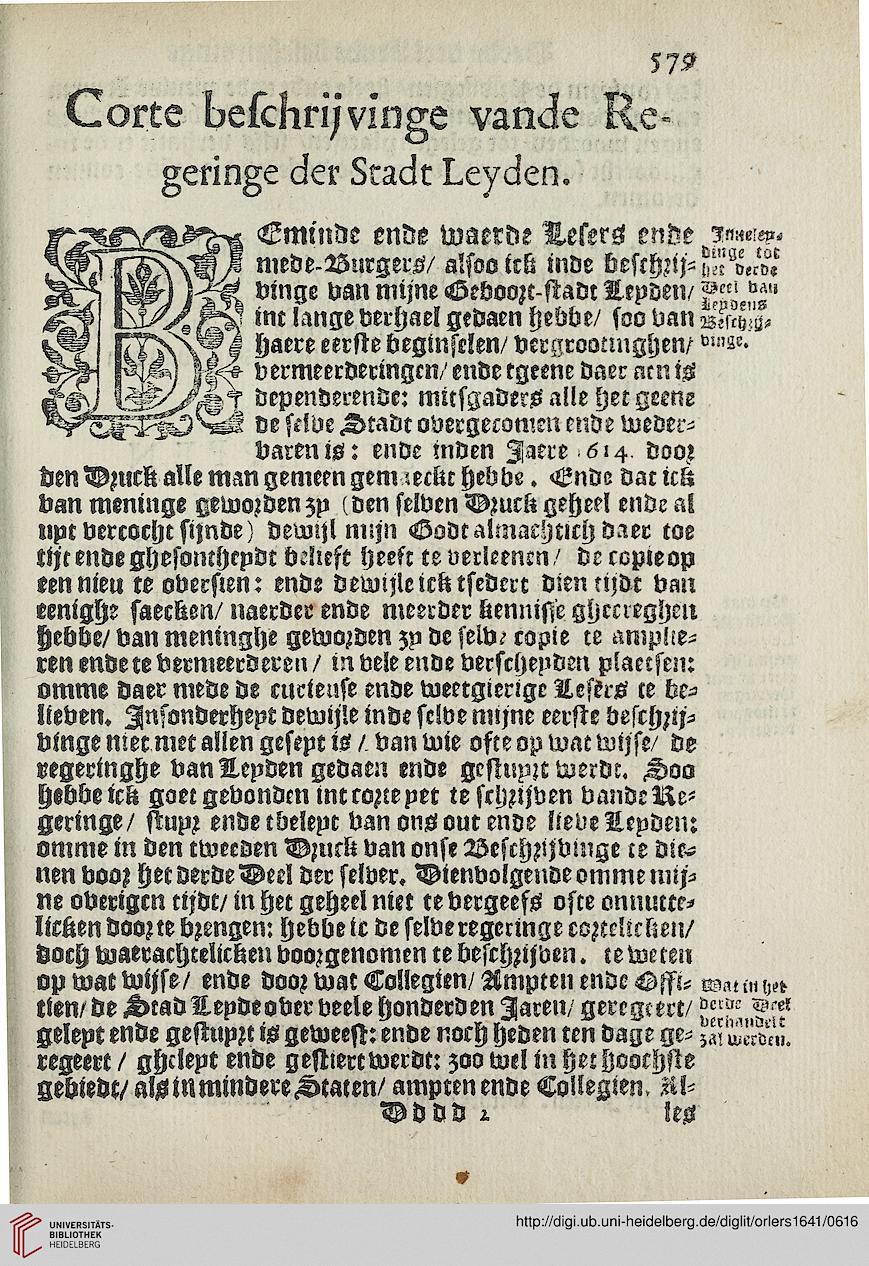 579
Corte beſchrijvinge vande Re-
geringe der Stadt Leyden.
BEminde ende waerde Leſers ende
mede-Burgers/ alſoo ick inde beſchrij-
vinge van mijne Geboort-ſtadt Leyden/
int lange verhael gedaen hebbe/ ſoo van
haere eerſte beginſelen/ vergrootinghen/
vermeerderingen/ ende tgeene daer aen is
dependerende: mitſgaders alle het geene
de ſelve Stadt overgecomen ende weder-
varen is: ende inden Jaere 1614. door
den Druck alle man gemeen gemaeckt hebbe. Ende dat ick
van meninge geworden zy (den ſelven Druck geheel ende al
uyt vercocht ſijnde) dewijl mijn Godt almachtich daer toe
tijt ende gheſontheydt belieft heeft te verleenen/ de copie op
een nieu te overſien: ende dewijle ick tſedert dien tijdt van
eenighe ſaecken/ naerder ende meerder kenniſſe ghecreghen
hebbe/ van meninghe geworden zy de ſelve copie te amplie-
ren ende te vermeerderen/ in vele ende verſcheyden plaetſen:
omme daer mede de curieuſe ende weetgierige Leſers te be-
lieven. Inſonderheyt dewijle inde ſelve mijne eerſte beſchrij-
vinge niet met allen geſeyt is/ van wie ofte op wat wijſe/ de
regeringhe van Leyden gedaen ende geſtuyrt werdt. Soo
hebbe ick goet gevonden int corte yet te ſchrijven vande Re-
geringe/ ſtuyr ende tbeleyt van ons out ende lieve Leyden:
omme in den tweeden Druck van onſe Beſchrijvinge te die-
nen voor het derde Deel der ſelver. Dienvolgende omme mij-
ne overigen tijdt/ in het geheel niet te vergeefs ofte onnutte-
licken door te brengen: hebbe ic de ſelve regeringe cortelicken/
doch waerachtelicken voorgenomen te beſchrijven. te weten
op wat wijſe/ ende door wat Collegien/ Ampten ende Offi-
tien/ de Stad Leyde over veele honderden Jaren/ geregeert/
geleyt ende geſtuyrt is geweeſt: ende noch heden ten dage ge-
regeert/ gheleyt ende geſtiert werdt: zoo wel in het hoochſte
gebiedt/ als in mindere Staten/ ampten ende Collegien. Al-
Dddd 2 les
Inneley-
dinge tot
het derde
Deel van
Leydens
Beſchrij-
vinge.
Wat in het
derde Deel
verhandelt
zal werden.
UNIVERSITÄTS-
BIBLIOTHEK
HEIDELBERG
http://digi.ub.uni-heidelberg.de/diglit/orlers1641/0616